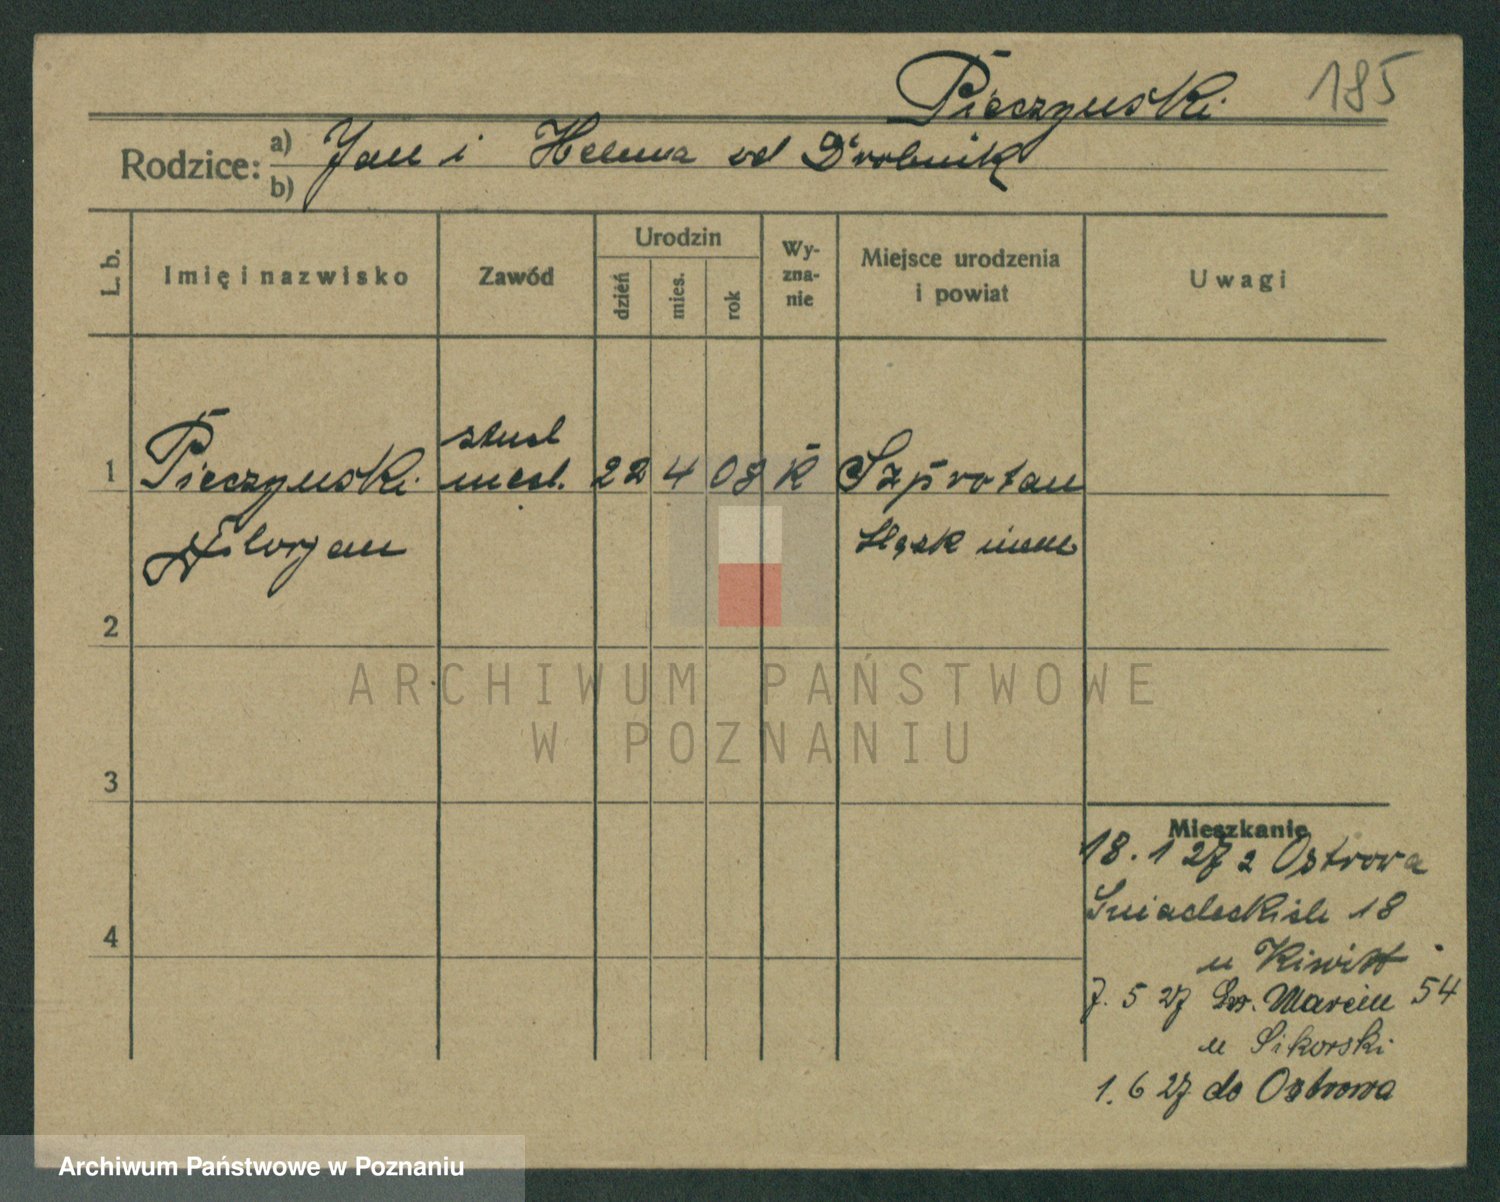 Pieczyński 185
Rodzice: a) Jan i Helena od Drobnik
b)
L. b. Imię i nazwisko Zawód Urodzin dzień mies. rok Wy-zna-nie Miejsce urodzenia i powiat Uwagi
stud
1 Pieczyński med. 22 4 08 k Szprotau
Florjan Śląsk niem
2
ARCHIWUM PAŃSTWOWE
W POZNANIU
3
Mieszkanie
18. 1 27 z Ostrowa
Śniadeckich 18
4
u Kiwitt
7. 5 27 Św. Marcin 54
u Sikorski
1. 6 27 do Ostrowa
Archiwum Państwowe w Poznaniu